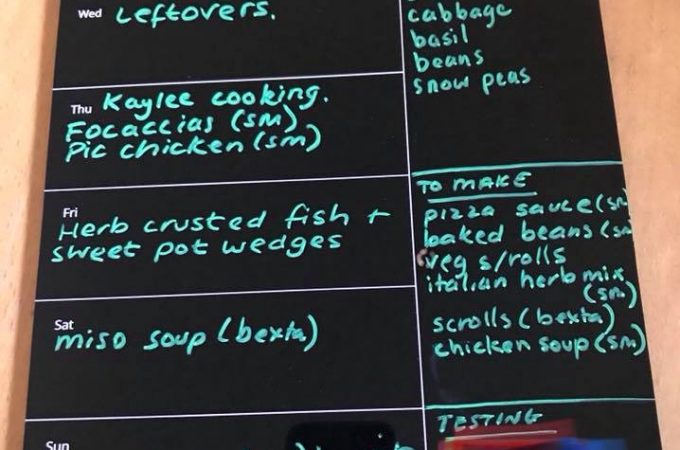 Wed Leftovers.
Thu Kaylee cooking.
Focaccias (sm)
Pic chicken (sm)
Fri
Herb crusted fish +
sweet pot wedges
Sat
miso soup (bexta)
Sun
cabbage
basil
beans
snow peas
TO MAKE
pizza sauce (sm
baked beans (sm
veg s/rolls
italian herb mix
(sm)
scrolls (bexta)
chicken soup (sm)
TESTING